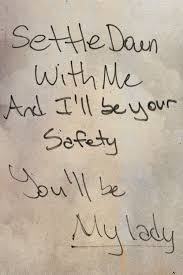 Settle Down
With Me
And I'll be your
Safety
You'll be
My lady